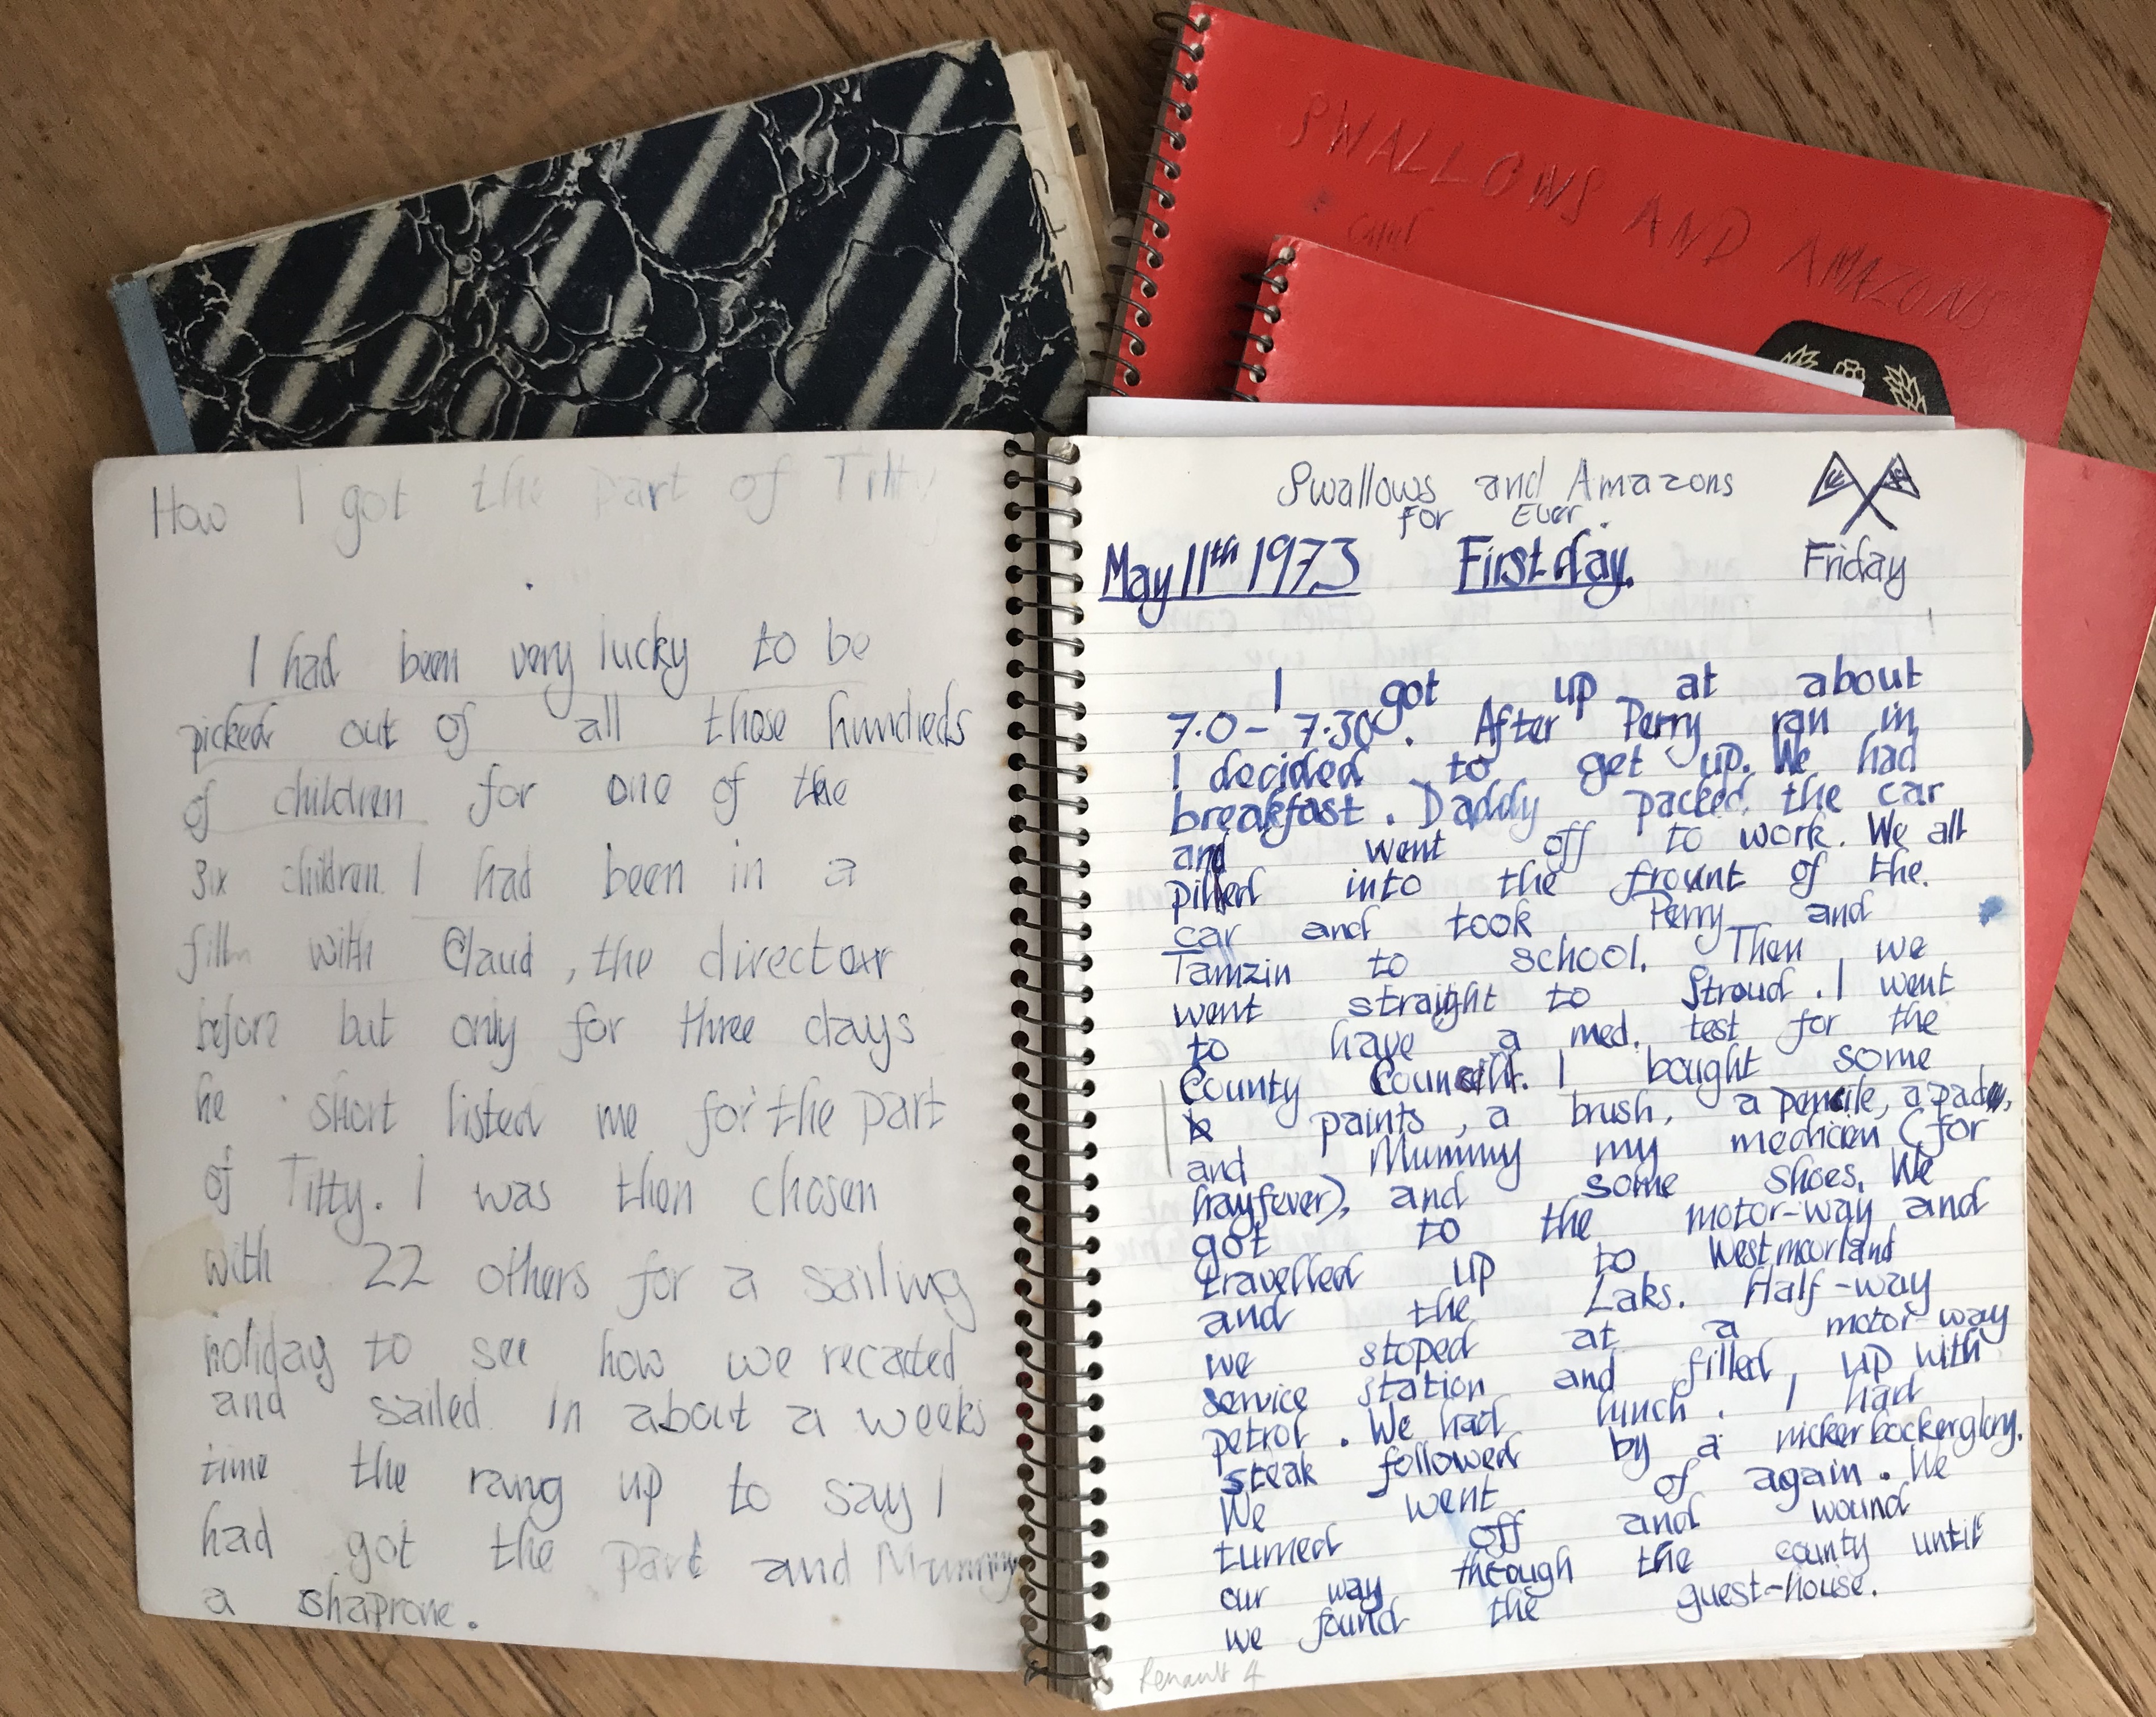 SWALLOWS AND AMAZONS
How I got the part of Titty
I had been very lucky to be
picked out of all those hundieds
of children for one of the
six children. I had been in a
film with Claud, the director
before but only for three days
he short listed me for the part
of Titty. I was then chosen
with 22 others for a sailing
holiday to see how we recacted
and sailed. In about a weeks
time the rang up to say I
had got the part and Mummy
a shaprone.
Swallows and Amazons
For Ever.
May 11th 1973 First day. Friday
I got up at about
7.0 - 7.30. After Perry ran in
I decided to get up. We had
breakfast. Daddy packed the car
and went off to work. We all
pilled into the frount of the.
car and took Perry and
Tamzin to school. Then we
went straight to Stroud. I went
to have a med. test for the
County Council. I bought some
paints, a brush, a pencile, a pad,
and Mummy my medicien (for
hayfever), and some shoes. We
got to the motor-way and
travelled up to Westmoorland
and the Laks. Half-way
we stoped at a motor-way
service station and filled up with
petrol. We had lunch. I had
steak followed by a nickerbockerglory.
We went of again. We
turned off and wound
our way through the county until
we found the guest-house.
Renault 4